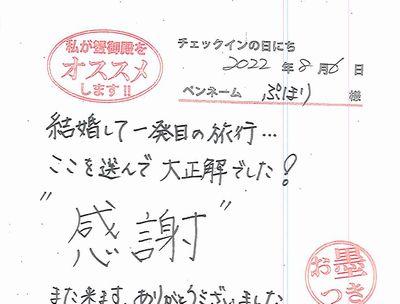 私が蟹御殿を
オススメ
します!!
チェックインの日にち
2022年8月6日
ペンネーム ぷはり 様
結婚して一発目の旅行…
ここを選んで大正解でした!
"感謝"
また来ます。ありがとうございました
お墨
つき